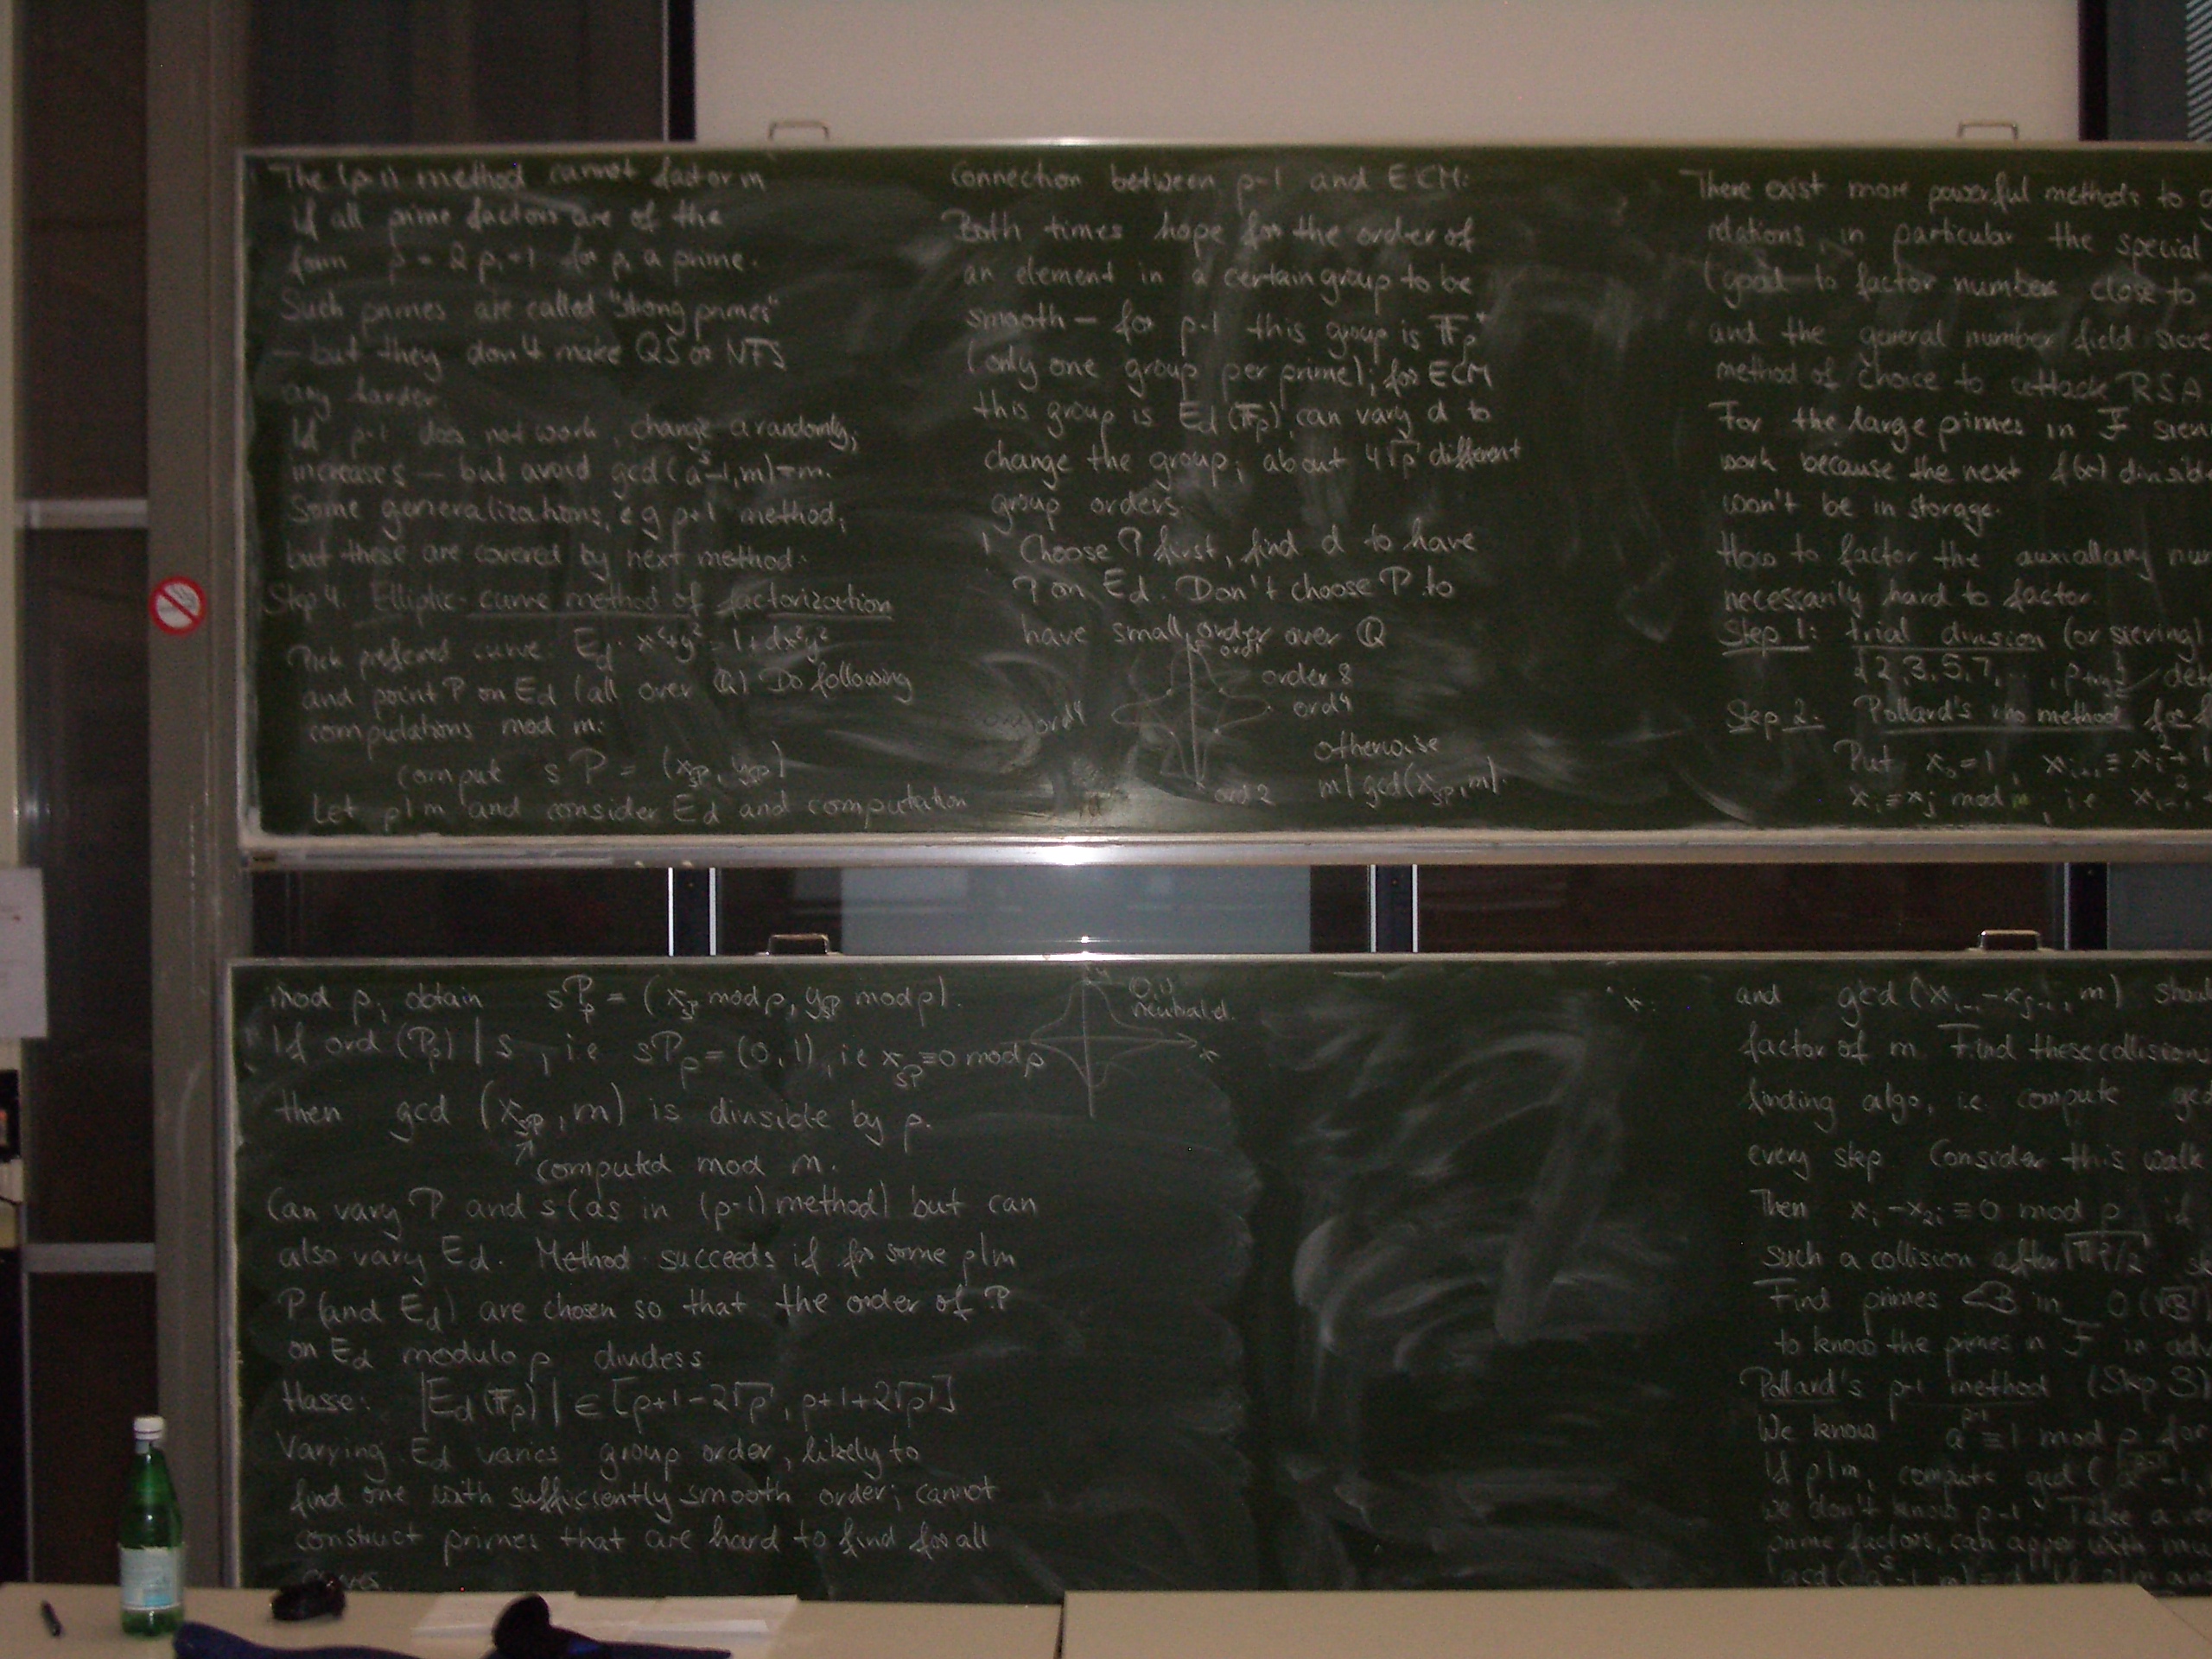 The (p-1) method cannot factor m
if all prime factors are of the
form p = 2p₁+1 for p₁ a prime.
Such primes are called "strong primes"
– but they don't make QS or NFS
any harder
If p-1 does not work, change a randomly;
increase s – but avoid gcd(aˢ-1,m)=m.
Some generalizations, eg p+1 method,
but these are covered by next method.
Step 4. Elliptic-curve method of factorization
Pick preferred curve: E_d: x²+y² = 1+dx²y²
and point P on E_d (all over Q) Do following
computations mod m:
comput sP = (x_sP, y_sP)
Let p|m and consider E_d and computation
Connection between p-1 and ECM:
Both times hope for the order of
an element in a certain group to be
smooth – for p-1 this group is F_p*
(only one group per prime); for ECM
this group is E_d(F_p), can vary d to
change the group; about 4√p different
group orders.
! Choose P first, find d to have
P on E_d. Don't choose P to
have small order over Q
ord 1
order 8
ord 4
ord 4
ord 2
otherwise
m | gcd(x_sP, m).
There exist more powerful methods to
relations, in particular the special
(good to factor number close to
and the general number field sieve
method of choice to attack RSA
For the large pimes in F
work because the next f(x)
won't be in storage.
How to factor the auxiallary
necessarily hard to factor.
Step 1: trial division (or sieving)
{2,3,5,7,..,
Step 2: Pollard's rho method for
Put x₀=1, x_{i+1} ≡ x_i²+1
x_i ≡ x_j mod , i.e
mod p, obtain sP_p = (x_sP mod p, y_sP mod p).
If ord (P_p) | s, i.e sP_p = (0,1), i.e x_sP ≡ 0 mod p
then gcd (x_sP, m) is divisible by p.
computed mod m.
Can vary P and s (as in (p-1) method) but can
also vary E_d. Method succeeds if for some p|m
P (and E_d) are chosen so that the order of P
on E_d modulo p divides s
Hasse: |E_d(F_p)| ∈ [p+1-2√p, p+1+2√p]
Varying E_d varies group order, likely to
find one with sufficiently smooth order; cannot
construct primes that are hard to find for all
curves.
(0,1)
neutral el.
x
and gcd(x_{i-1}-x_{j-1}, m)
factor of m. Find these collision
finding algo, i.e. compute
every step. Consider this walk
Then x_i - x_{2i} ≡ 0 mod p if
such a collision after √(πp/2)
Find primes <B in O(√B)
to know the primes in F in
Pollard's p-1 method (Step 3)
We know a^{p-1} ≡ 1 mod p for
If p|m, compute gcd(a^{p-1}-1,
we don't know p-1. Take a
prime factors, can
gcd(aˢ-1, m)